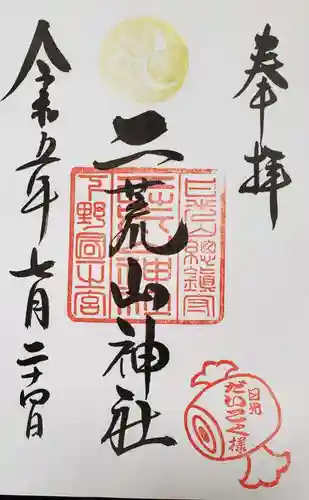 奉拝
二荒山神社
令和五年七月二十四日
日光山總鎮守
下野国一之宮
日光
だいこく様